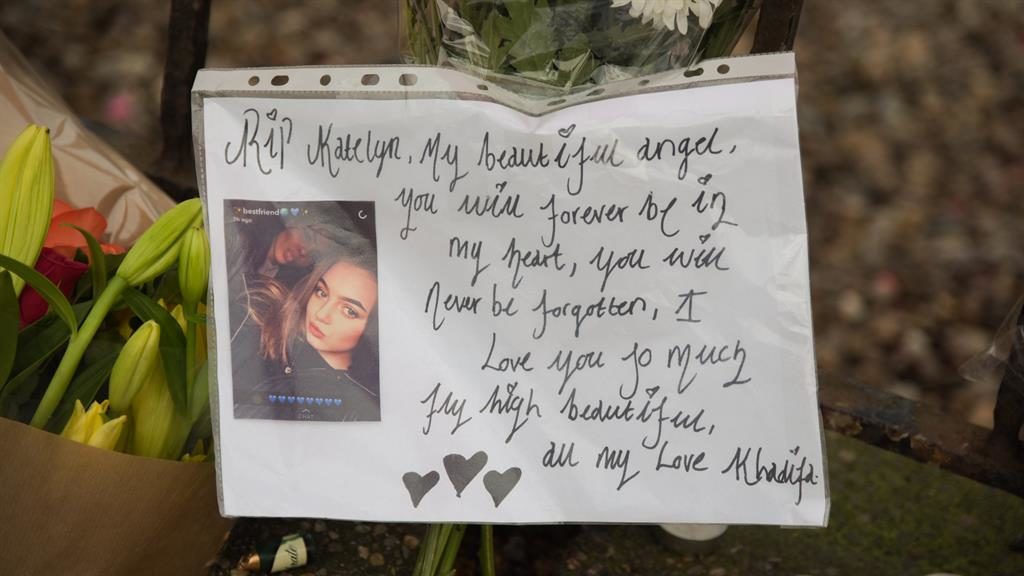 RiP Katelyn, My beautiful angel,
you will forever be in
my heart, you will
Never be forgotten, I
Love you so much
fly high beautiful,
all my Love Khadifa
bestfriend
2h ago
CHAT